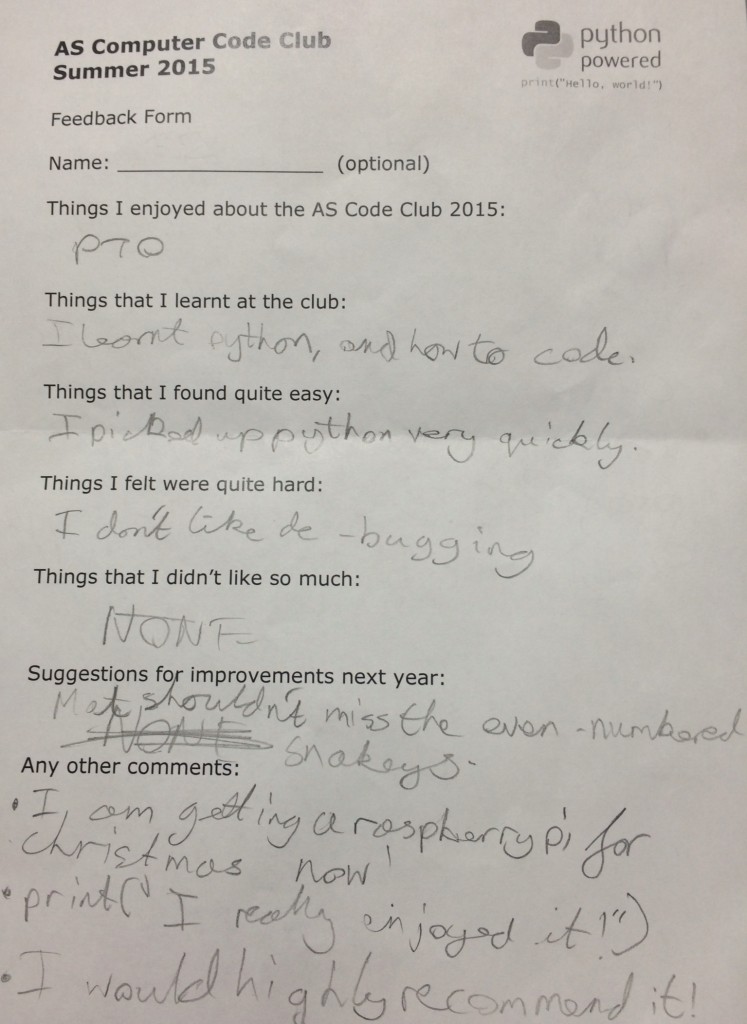 AS Computer Code Club
Summer 2015
python
powered
print("Hello, world!")
Feedback Form
Name: ____________________ (optional)
Things I enjoyed about the AS Code Club 2015:
PTO
Things that I learnt at the club:
I learnt python, and how to code.
Things that I found quite easy:
I picked up python very quickly.
Things I felt were quite hard:
I don't like de-bugging
Things that I didn't like so much:
NONE
Suggestions for improvements next year:
Mat shouldn't miss the even-numbered
NONE snakeys.
Any other comments:
• I am getting a raspberry pi for
Christmas now!
• print("I really enjoyed it!")
• I would highly recommend it!